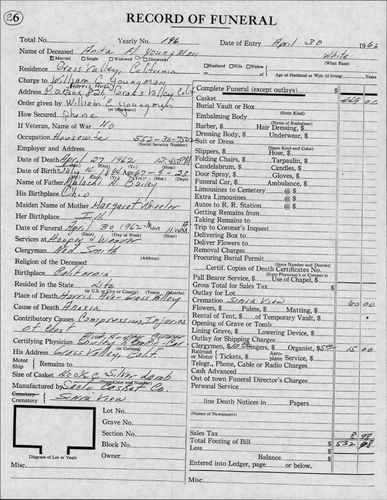 26
RECORD OF FUNERAL
Total No. Yearly No. 196 Date of Entry April 30 1962
Name of Deceased Anita M. Youngman White
(What Race)
Married Single Widowed Divorced Husband Wife Widow of
Residence Grass Valley, California Age of Husband or Wife (if living) Years
Charge to William C. Youngman
Address P.O. Box 826, Grass Valley Calif
Order given by William C. Youngman
How Secured Phone
If Veteran, of What War No
Occupation Housewife
(Social Security Number)
Employer and Address
Date of Death April 27 1962
Date of Birth July
Name of Father Bailey
His Birthplace Ohio
Maiden Name of Mother Margaret Wheeler
Her Birthplace Ill.
Date of Funeral Apr. 30 1962 Mon 11 A M
Services at Hooper & Weaver
Clergyman Smith
Religion of the Deceased
Birthplace California
Resided in the State Life
Place of Death Harris Grass Valley
Cause of Death Anoxia
Contributory Causes Compression Injuries
of Chest
Certifying Physician
His Address Grass Valley, Calif.
Ship Remains to
Size of Casket Silver Lamb
(State Color and Number)
Manufactured by Casket Co.
Cemetery
Crematory Sierra View
Lot No.
Grave No.
Section No.
Block No.
Owner
Diagram of Lot or Vault
Misc.
Complete Funeral (except outlays) $
Casket
Burial Vault or Box
(State Kind)
Embalming Body
(Name of Embalmer)
Barber, $ Hair Dressing, $
Dressing Body, $ Underwear, $
Suit or Dress
(State Kind and Color)
Slippers, $ Hose, $
Folding Chairs, $ Tarpaulin, $
Candelabrum, $ Candles, $
Door Spray, $ Gloves, $
Funeral Car, $ Ambulance, $
Limousines to Cemetery @ $
Extra Limousines @ $
Autos to R. R. Station @ $
Getting Remains from
Taking Remains to
Trip to Coroner's Inquest
Delivering Box to
Deliver Flowers to
Removal Charges
Procuring Burial Permit
(State Number and District)
Certif. Copies of Death Certificates No.
Pall Bearer Service, $ Use of Chapel, $
Gross Total for Sales Tax $
Outlay for Lot
Cremation Sierra View 60 00
Flowers, $ Palms, $ Matting, $
Rental of Tent, $ of Temporary Vault, $
Opening of Grave or Tomb
Lining Grave, $ Lowering Device, $
Outlay for Shipping Charges
Clergymen, $10 Singers, $ Organist, $5 15 00
Telegr., Phone, Cable or Radio Charges
Cash Advanced
Out of town Funeral Director's Charges
Personal Service
line Death Notices in Papers
(Names of Newspapers)
Sales Tax
Total Footing of Bill $ 532
Less
Balance $
Entered into Ledger, page or below.
Misc.